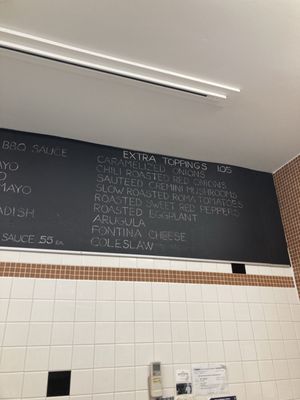 BBQ SAUCE
AYO
O
MAYO
ADISH
SAUCE .55 EA.
EXTRA TOPPINGS 1.05
CARAMELIZED ONIONS
CHILI ROASTED RED ONIONS
SAUTEED CREMINI MUSHROOMS
SLOW ROASTED ROMA TOMATOES
ROASTED SWEET RED PEPPERS
ROASTED EGGPLANT
ARUGULA
FONTINA CHEESE
COLESLAW